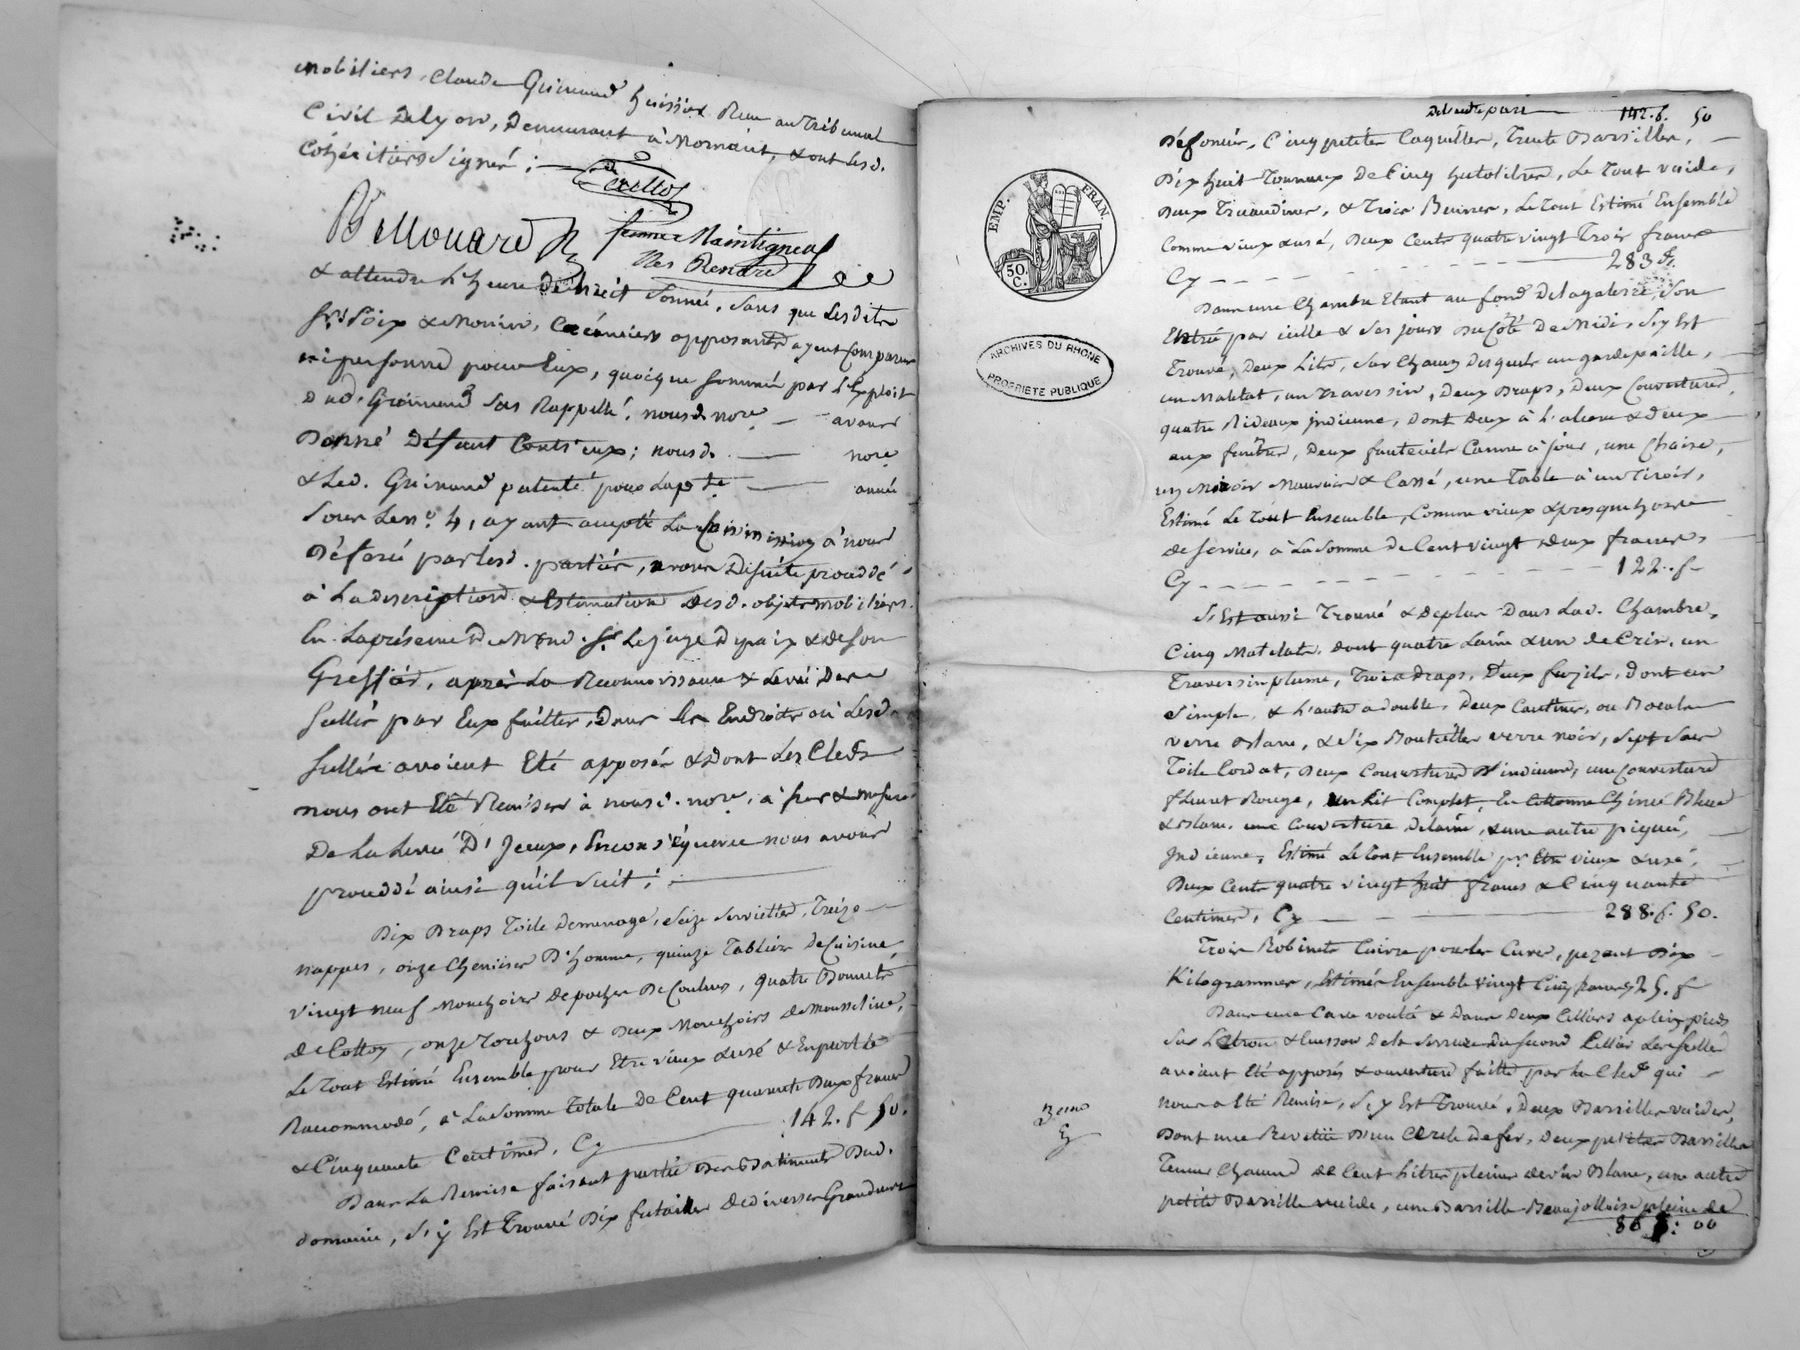 mobiliers, Claude Guinand huissier Reçu au Tribunal
Civil de Lyon, Demeurant à Mornant, & ont lesd.
Cohéritiers Signé;
Bellouard
femme Maintigneu
Nes Renard
& attendu L'heure de huit Sonnée, Sans que Lesdits
Srs. Soix & Monin, Créanciers opposants ayent Comparu
ni personne pour Eux, quoique Sommés par L'Exploit
Dud. Guinand Sus Rappellé, nousd. nore. avons
Donné Défaut Contr'eux; nousd. nore.
& Led. Guinand patenté pour La pte. année
Sous Le no. 4, ayant accepté La Commission à nous
Déférée par Lesd. parties, avons De suite procédé
à La description & Estimation Desd. objets mobiliers.
En La présence De Sr. Le juge De paix & de Son
Greffier, après La Reconnoissance & Levée Des
Scellés par Eux faittes, Dans Les Endroits où Lesd.
Scellés avoient Eté apposés & Dont Les Clefs
nous ont Eté Remises à nousd. nore. à fur & mesure
De La Levée D'Iceux, En conséquence nous avons
procédé ainsi qu'il Suit;
Dix Draps Toile De menage, Seize Serviettes, Treize
nappes, onze Chemises D'homme, quinze Tabliers De Cuisine
vingt neuf Mouchoirs De poche De Couleurs, quatre Bonnets
De Cotton, onze Torchons & Deux Mouchoirs de Mousseline,
Le Tout Estimé Ensemble pour Etre vieux & usé & En partie
Raccommodé, à La Somme Totale De Cent quarante Deux francs
& Cinquante Centimes, Cy 142. f 50.
Dans La Remise faisant partie Des Batiments Dud.
domaine, S'y Est Trouvé Dix futailles De diverses Grandeurs
De l'autre part 142. f. 50
EMP. FRAN.
50. C.
ARCHIVES DU RHONE
PROPRIETE PUBLIQUE
Défoncées, Cinq petites Caquilles, Trente Barilles,
Dix huit Tonneaux de Cinq hectolitres, Le Tout vuide,
Deux & Trois Bennes, Le Tout Estimé Ensemble
Comme vieux & usé, Deux Cents quatre vingt Trois francs
Cy 283 f.
Dans une Chambre Etant au fond De La galerie, Son
Entrée par icelle & Ses jours Du Côté De Midi, S'y Est
Trouvé, Deux Lits, Sur Chacun Desquels un gardepaille,
un Matelat, un Traversin, Deux Draps, Deux Couvertures,
quatre Rideaux Indienne, Dont Deux à L'alcove & Deux
aux fenêtres, Deux fauteuils Canne à jour, une Chaise,
un Miroir Mauvais & Cassé, une Table à un Tiroir,
Estimé Le Tout Ensemble, Comme vieux & presque hors
de Service, à La Somme De Cent vingt Deux francs,
Cy 122. f
S'Est aussi Trouvé & De plus Dans Lad. Chambre,
Cinq Matelats, Dont quatre Laine & un de Crin, un
Traversin plume, Trois Draps, Deux fuzils, Dont un
Simple, & L'autre à double, Deux ou Bocals
verre Blanc, & Six Bouteilles verre noir, Sept Sacs
Toile Cordat, Deux Couvertures D'indienne, une Couverture
fleuret Rouge, un Lit Complet, En Cotonne Chinée Bleue
& Blanc, une Couverture De Laine, & une autre piquée,
Indienne, Estimé Le Tout Ensemble pr. Etre vieux & usé,
Deux Cents quatre vingt huit francs & Cinquante
Centimes, Cy 288. f. 50.
Trois Robinets Cuivre pour les Cuves, pezant Dix
Kilogrammes, Estimés Ensemble vingt Cinq francs, Cy 25. f
Dans une Cave voutée & Dans Deux Celliers à plein pieds
Sur L'Ecrou & Ecusson De La Serrure Du Second Cellier Les Scellés
avoient Eté apposés & ouverture faitte par La Clef qui
nous a Eté Remise, S'y Est Trouvé, Deux Barilles vuides,
Dont une Revetüe D'un Cercle de fer, Deux petites Barilles
Tenant Chacune de Cent Litres pleines de vin Blanc, une autre
petite Barille vuide, une Barille Beaujolloise pleine de
861: 00